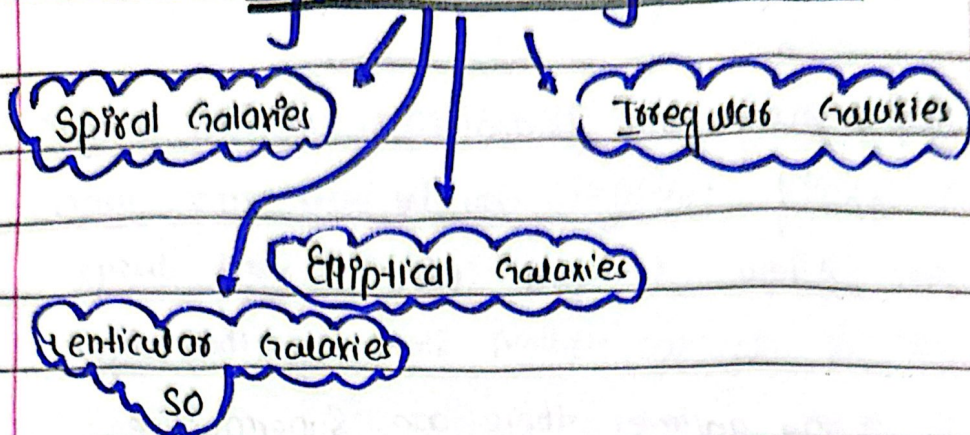 Spiral Galaxies
Irregular Galaxies
Elliptical Galaxies
Lenticular Galaxies
SO